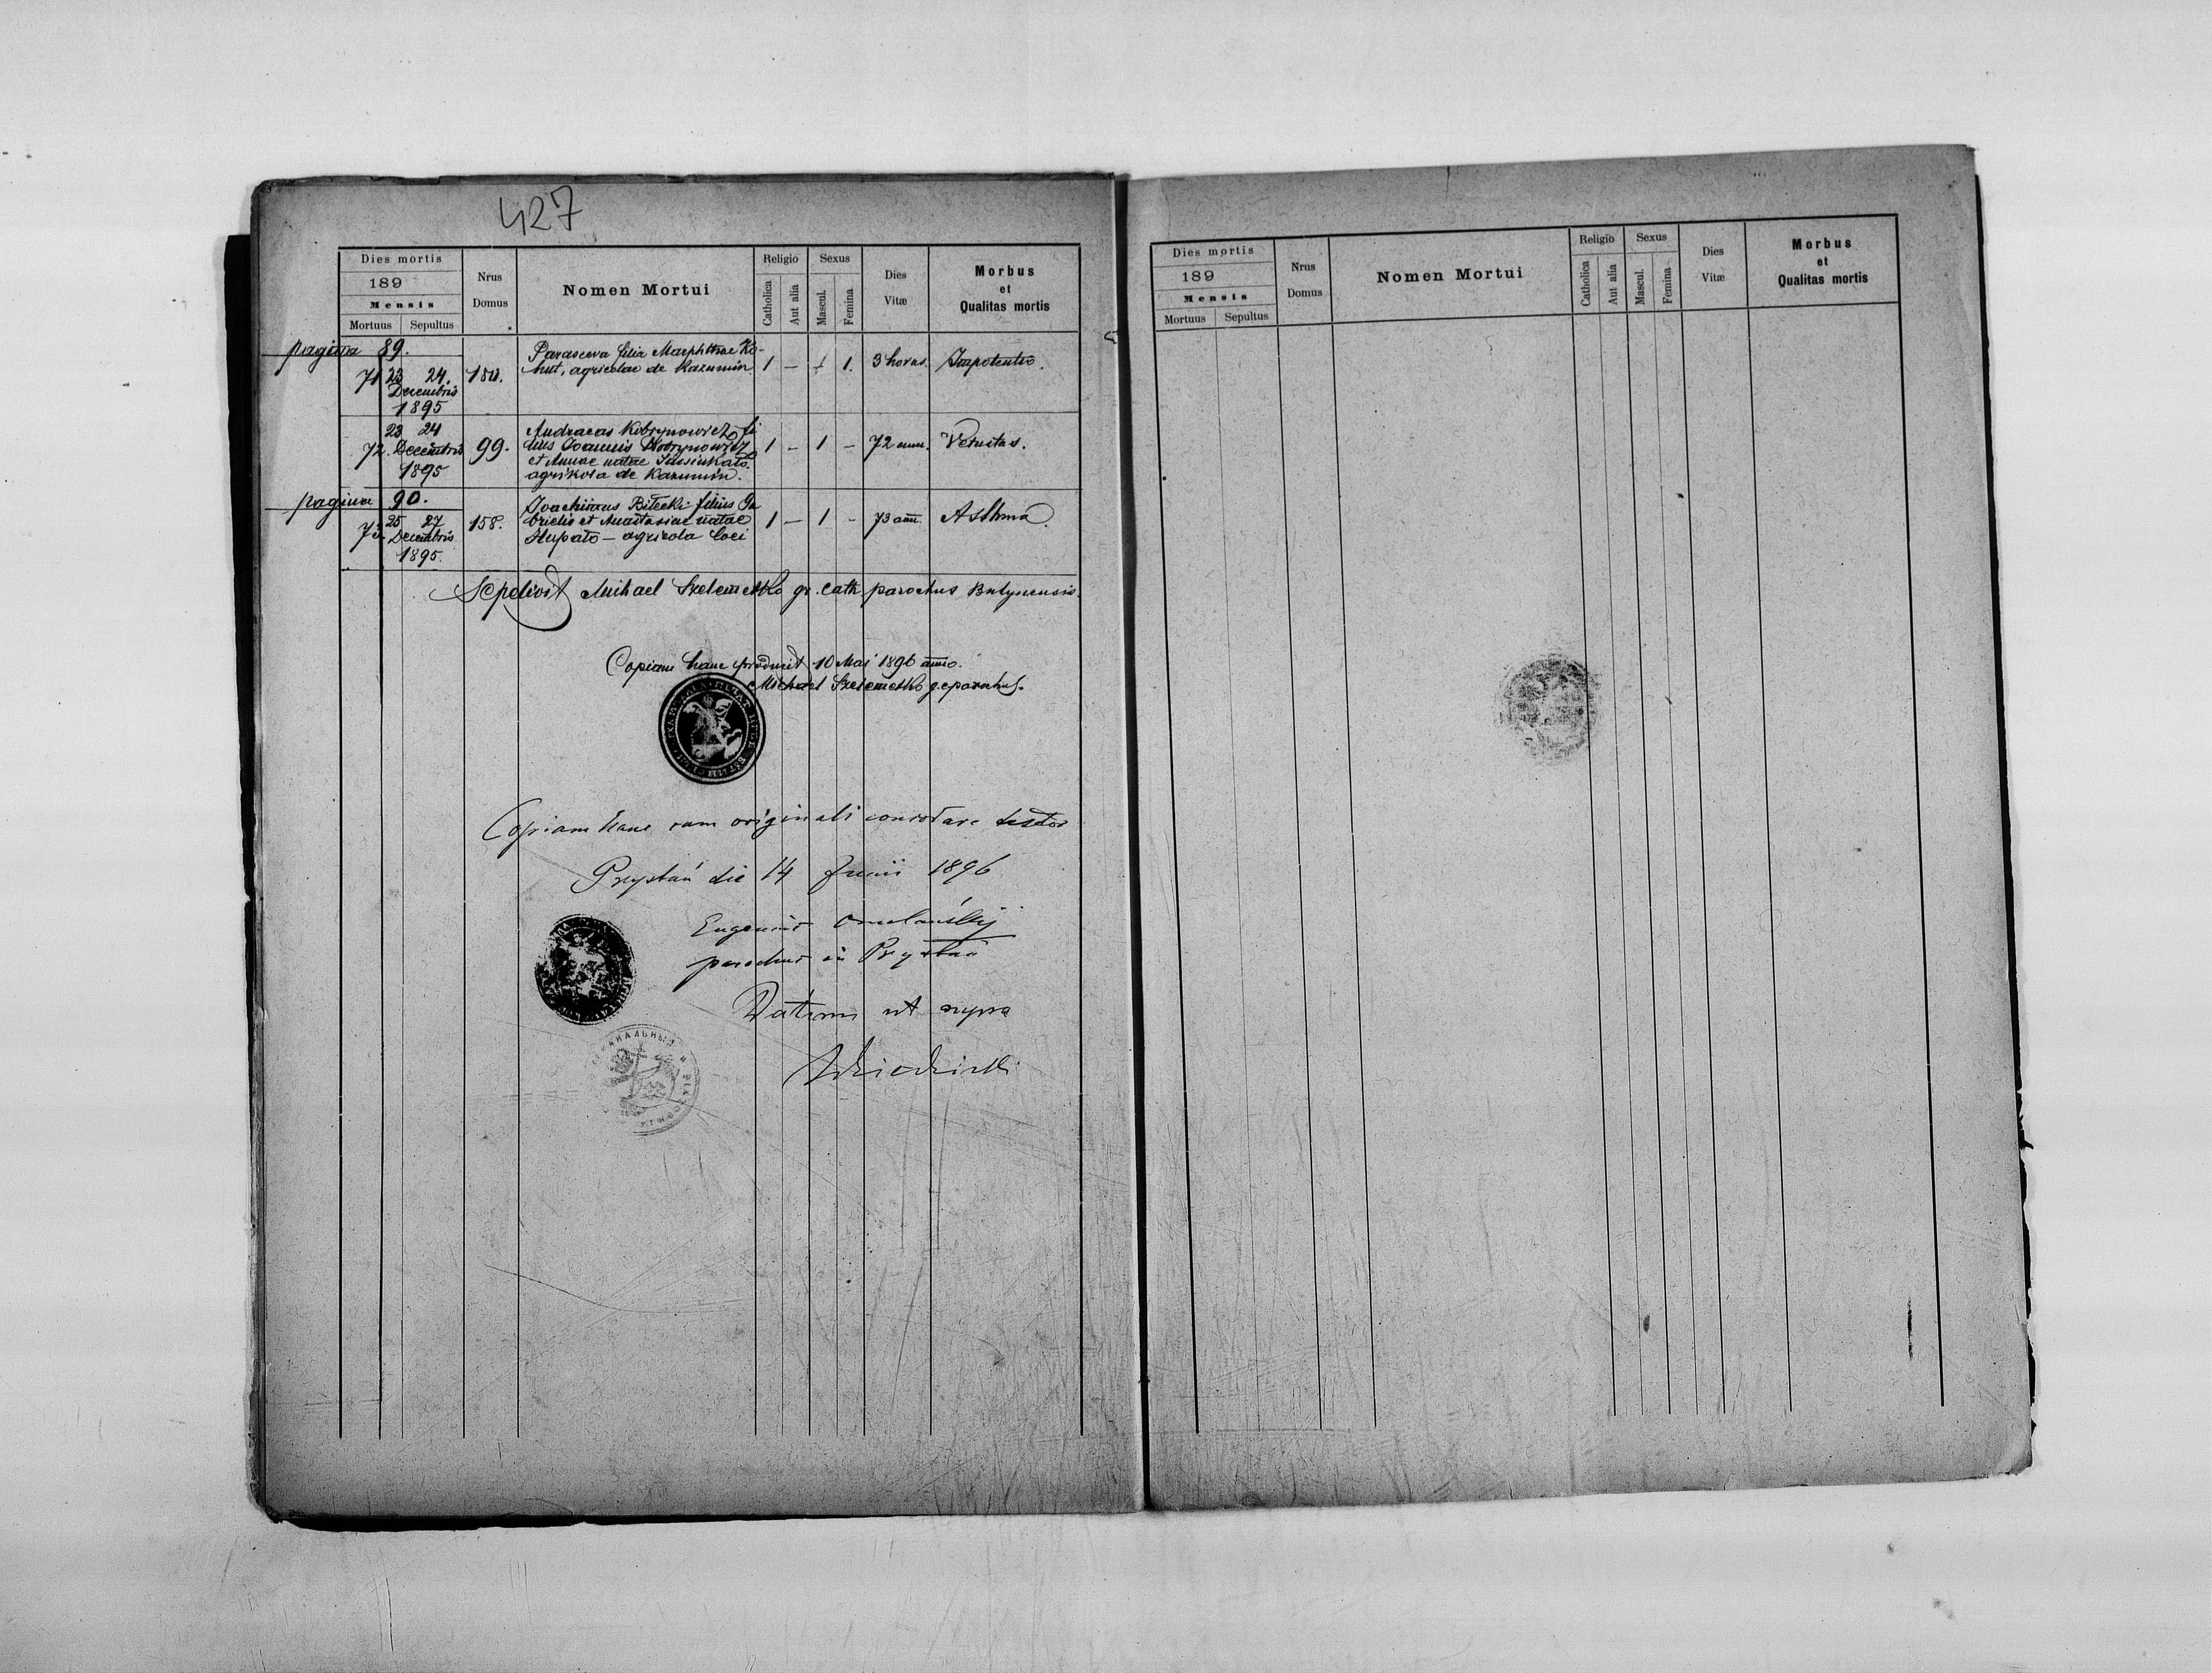 427
Dies mortis
189
Mensis
Mortuus Sepultus
Nrus
Domus
Nomen Mortui
Religio
Catholica
Aut alia
Sexus
Mascul.
Femina
Dies
Vitæ
Morbus
et
Qualitas mortis
pagina 89.
71 23 24.
Decembris
1895
Parasceva filia Ko-
hut, agricolae de Kazumin
1 – 1. 3 horas. Impotentia.
23 24
72. Decembris
1895
99.
Andraeas Kobrynowicz fi
lius Joannis Kobrynowicz
et Annae natae
agrikola de Kazumin.
1 – 1 – 72 ann. Vetustas.
pagina 90.
25 27
73. Decembris
1895.
158.
Joachimus Bilecki filius Ga
brielis et Anastasiae natae
agricola loci
1 – 1 – 73 ann. Asthma.
Sepelivit Michael Szeremetko gr. cath parochus Butynensis.
Copiam hanc producit 10 Mai 1896 anno.
Michael Szeremetko g.c parochus.
Copiam hanc cum originali concordare testor
Przystań die 14 Junii 1896
Eugenius
parochus in Przystań
Datum ut supra
Dies mortis
189
Mensis
Mortuus Sepultus
Nrus
Domus
Nomen Mortui
Religio
Catholica
Aut alia
Sexus
Mascul.
Femina
Dies
Vitæ
Morbus
et
Qualitas mortis